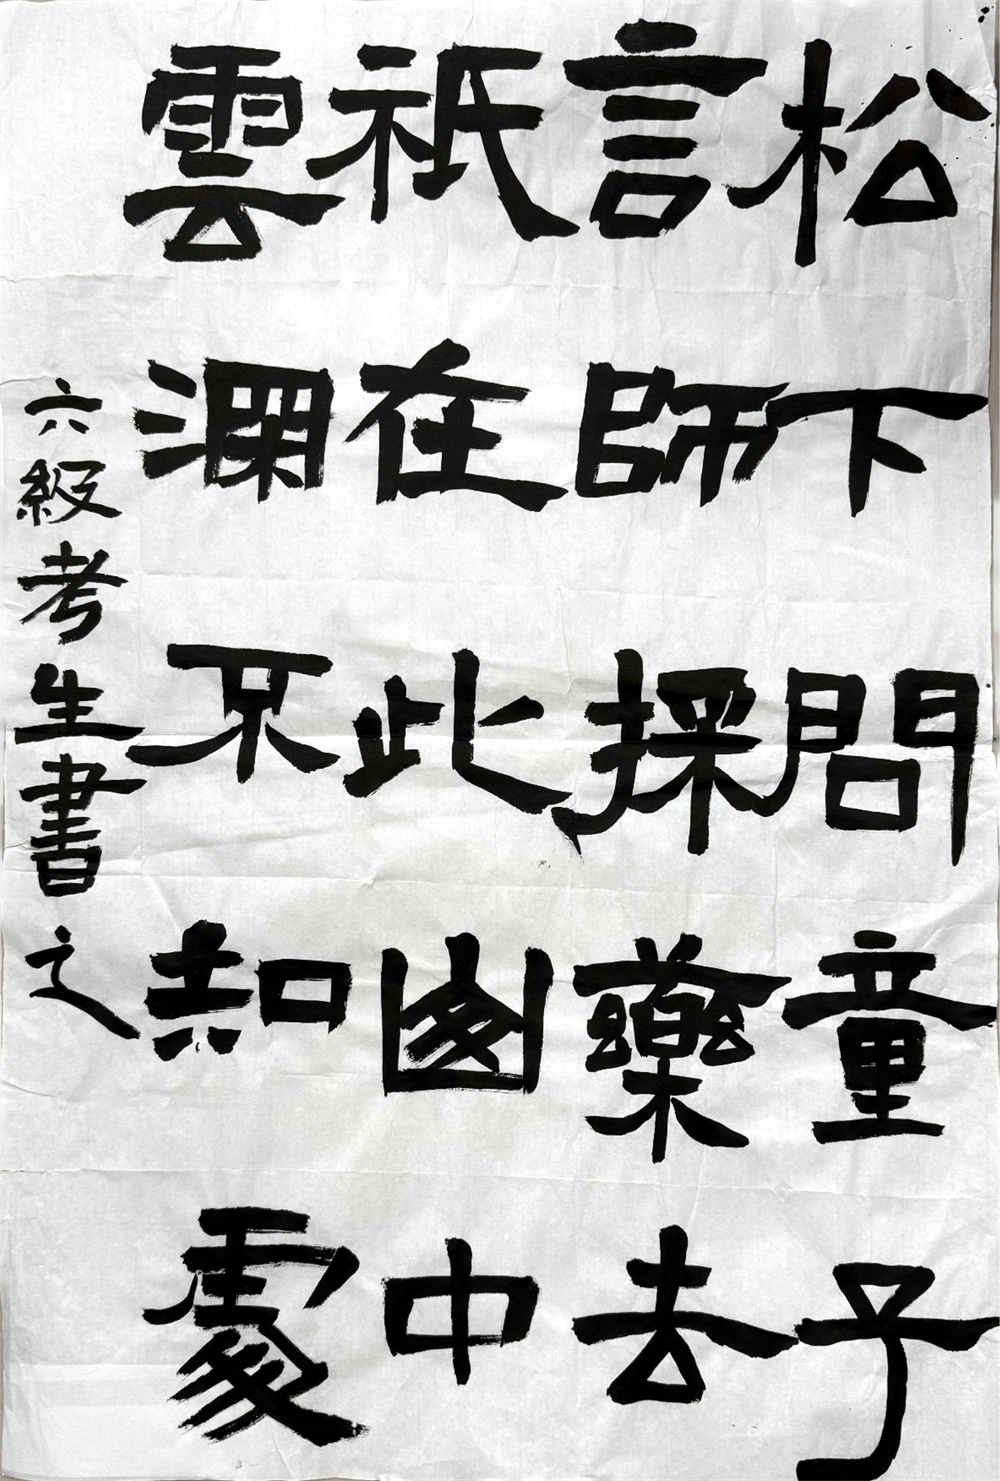 松下問童子
言師採藥去
祇在此山中
雲深不知處
六級考生書之